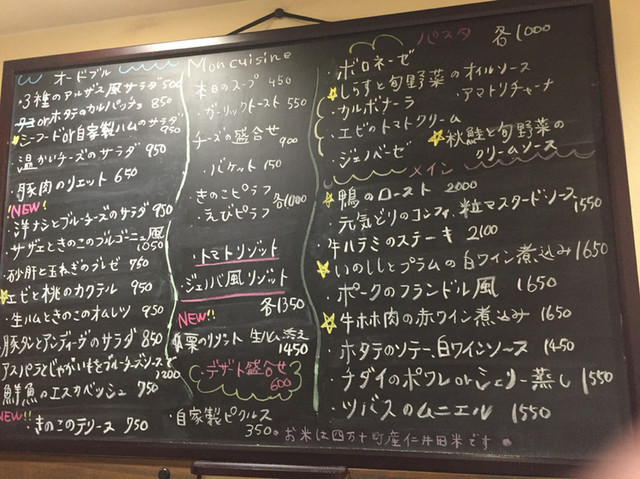 オードブル
・3種のアルザス風サラダ 500
orホタテのカルパッチョ 850
シーフードor自家製ハムのサラダ 950
・温かいチーズのサラダ 950
・豚肉のリエット 650
NEW!
・洋ナシとブルーチーズのサラダ 950
サザエときのこのブルゴーニュ風 1050
・砂肝と玉ねぎのブレゼ 750
エビと桃のカクテル 950
・生ハムときのこのオムレツ 950
豚タンとアンディーヴのサラダ 850
アスパラとじゃがいもをブルーチーズソースで 1200
鮮魚のエスカベッシュ 750
NEW!!
・きのこのテリーヌ 750
Mon cuisine
本日のスープ 450
・ガーリックトースト 550
チーズの盛合せ 900
・バケット 150
きのこピラフ
・えびピラフ 各1000
・トマトリゾット
・ジェノバ風リゾット
各1350
NEW!!
栗のリゾット 生ハム添え 1450
デザート盛合せ 600
・自家製ピクルス 350
パスタ 各1000
・ボロネーゼ
しらすと旬野菜のオイルソース
・カルボナーラ ・アマトリチャーナ
・エビのトマトクリーム
・ジェノベーゼ 秋鮭と旬野菜のクリームソース
メイン
・鴨のロースト 2000
・元気どりのコンフィ、粒マスタードソース 1550
・牛ハラミのステーキ 2100
・いのししとプラムの白ワイン煮込み 1650
・ポークのフランドル風 1650
・牛ホホ肉の赤ワイン煮込み 1650
・ホタテのソテー、白ワインソース 1450
・チダイのポワレorシェリー蒸し 1550
・ツバスのムニエル 1550
・お米は四万十町産仁井田米です。